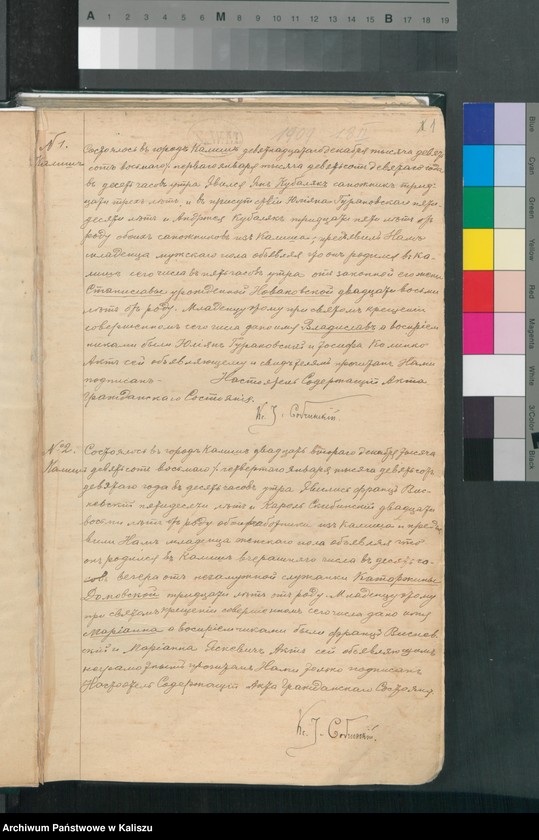 A 1 2 3 4 5 6 M 8 9 10 11 12 13 14 15 B 17 18 19
№ 1
N 1.
Калишъ
Состоялось въ городѣ Калишѣ девятнадцатаго декабря тысяча девять
сотъ восьмаго / перваго января тысяча девятьсотъ девятаго года
въ десять часовъ утра. Явился Янъ Кубалякъ сапожникъ трид-
цати трехъ лѣтъ, и въ присутствіи Юліяна Гурановскаго пяти-
десяти лѣтъ и Андржея Кубалякъ тридцати пяти лѣтъ отъ
роду обоихъ сапожниковъ изъ Калиша; предъявилъ Намъ
младенца мужскаго пола объявляя что онъ родился въ Ка-
лишѣ сего числа въ пять часовъ утра отъ законной его жены
Станиславы урожденной Новаковской двадцати восьми
лѣтъ отъ роду. Младенцу этому при святомъ крещеніи
совершенномъ сего числа дано имя Владиславъ а воспріем-
никами были Юліянъ Гурановский и Іозефа
Актъ сей объявляющему и свидѣтелямъ прочитанъ Нами
подписанъ - Настоятель Содержащій Акты
Гражданскаго Состоянія.
Кс. J. Собчинскій
N 2.
Калишъ
Состоялось въ городѣ Калишѣ двадцать втораго декабря тысяча
девятьсотъ восьмаго / четвертаго января тысяча девятьсотъ
девятаго года въ десять часовъ утра. Явились Францъ Вис-
новскій пятидесяти лѣтъ и Кароль Скибинскій двадцати
восьми лѣтъ отъ роду оба работники изъ Калиша и предъя-
вили Намъ младенца женскаго пола объявляя что
онъ родился въ Калишѣ вчерашняго числа въ десять ча-
совъ вечера отъ незамужной служанки Катаржины
Домовской тридцати лѣтъ отъ роду. Младенцу этому
при святомъ крещеніи совершенномъ сего числа дано имя
Маріанна а воспріемниками были Францъ Виснов-
скій и Маріанна Яскевичъ. Актъ сей объявляющимъ
неграмотнымъ прочитанъ Нами только подписанъ
Настоятель Содержащій Акты Гражданскаго Состоянія
Кс. J. Собчинскій.
Blue
Cyan
Green
Yellow
Red
Magenta
White
3/Color
Black
Archiwum Państwowe w Kaliszu